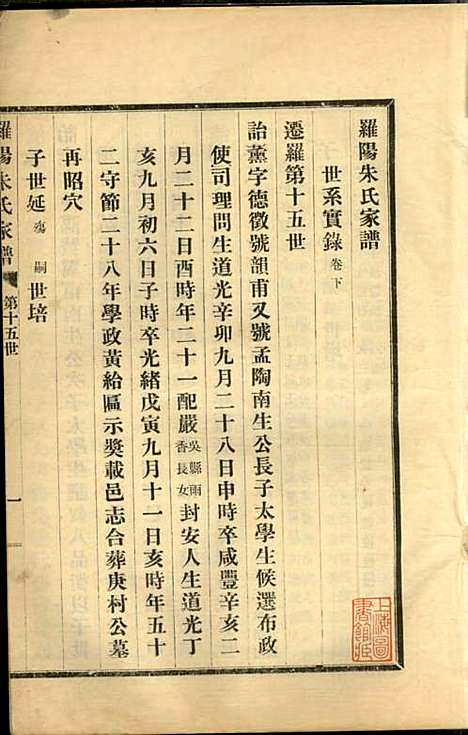 羅陽朱氏家譜
世系實錄卷下
遷羅第十五世
詒薰字德徵號韻甫又號孟陶南生公長子太學生候選布政
使司理問生道光辛卯九月二十八日申時卒咸豐辛亥二
月二十二日酉時年二十一配嚴吳縣雨香長女封安人生道光丁
亥九月初六日子時卒光緒戊寅九月十一日亥時年五十
二守節二十八年學政黃給區示獎載邑志合葬庚村公墓
再昭穴
子世延殤嗣世培
羅陽朱氏家譜 第十五世 一
上海圖書館藏